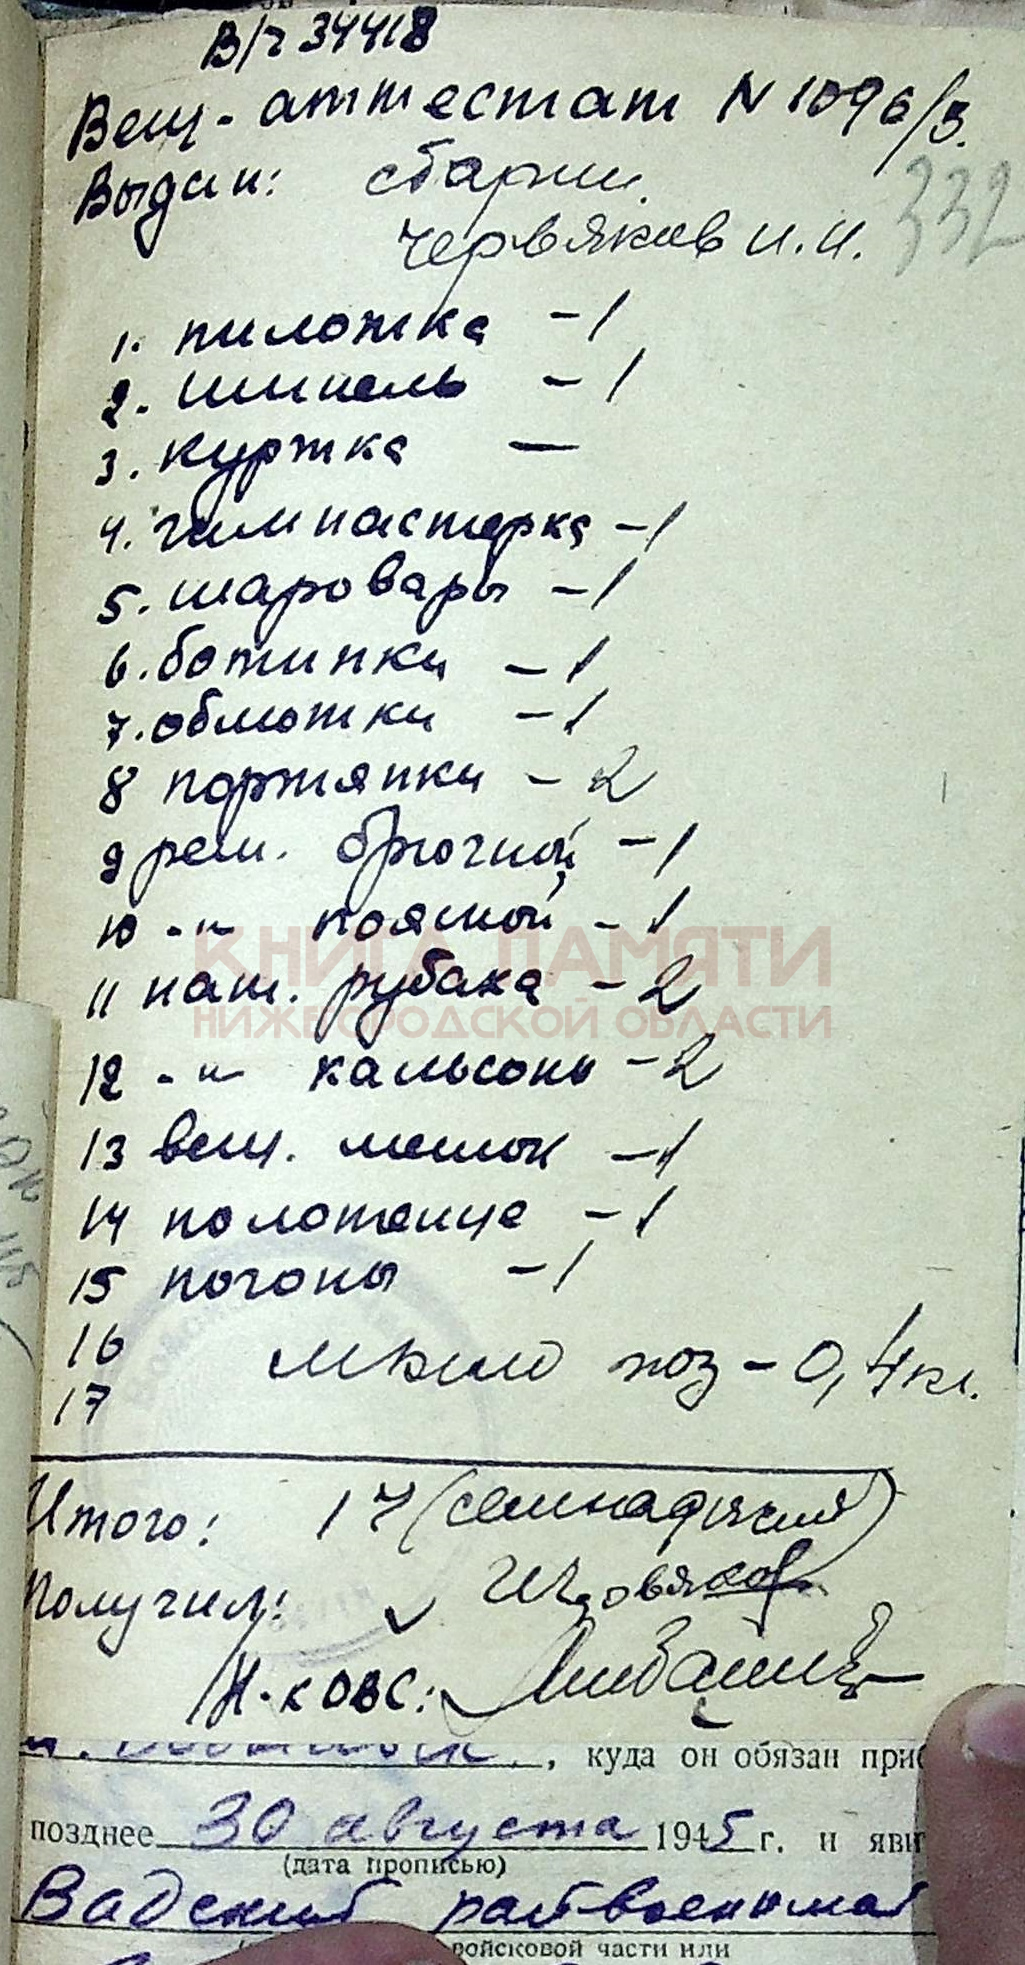 В/ч 34418
Вещ-аттестат N 1096/в.
332
Выдан: старш.
Червяков и.и.
1. пилотка - 1
2. шинель - 1
3. куртка —
4. гимнастерка - 1
5. шаровары - 1
6. ботинки - 1
7. обмотки - 1
8 портянки - 2
9 рем. брючной - 1
10 -"- поясной - 1
КНИГА ПАМЯТИ
11 нат. рубаха - 2
НИЖЕГОРОДСКОЙ ОБЛАСТИ
12 -"- кальсоны - 2
13 вещ. мешок - 1
14 полотенце - 1
15 погоны - 1
16 мыло хоз - 0,4кг.
17
Итого: 17 (семнадцать)
Получил: Червяков
Н-к ОВС:
, куда он обязан при
позднее 30 августа 1945 г. и яви
(дата прописью)
Вадский райвоенкомат
войсковой части или